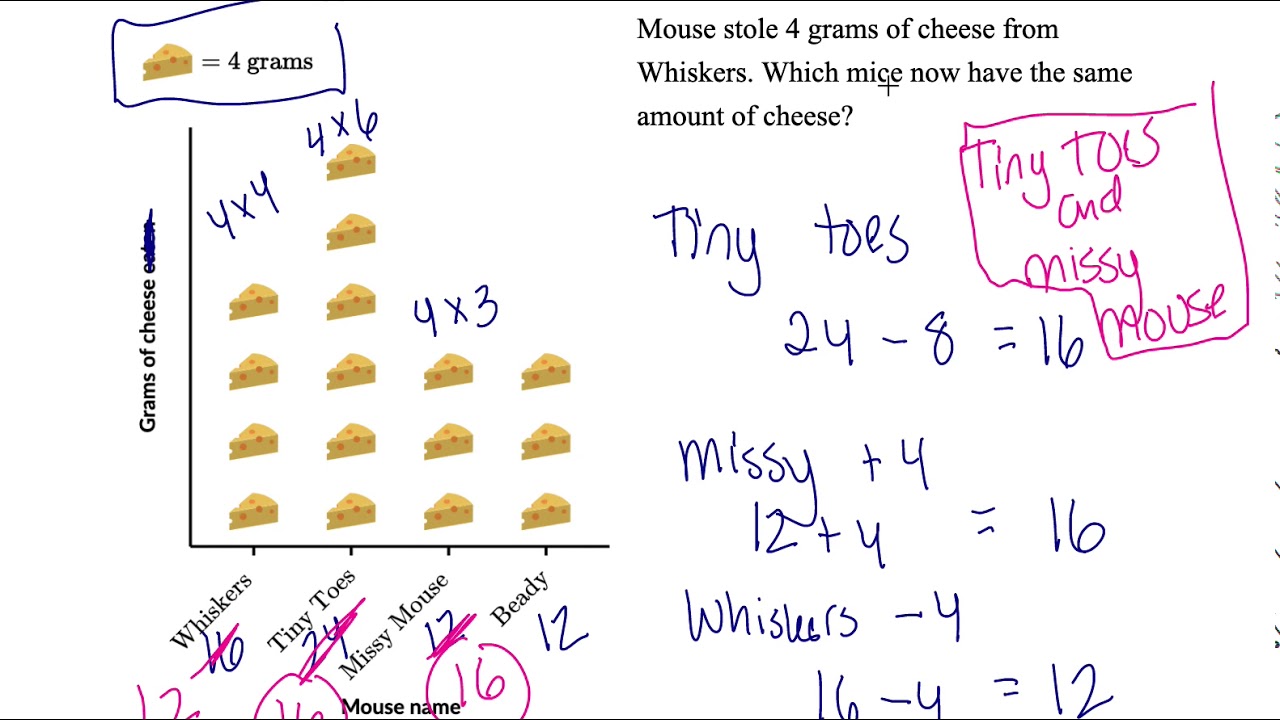 = 4 grams
Mouse stole 4 grams of cheese from
Whiskers. Which mice now have the same
amount of cheese?
4×6
4×4
4×3
Grams of cheese
Tiny toes
and
missy
mouse
Tiny toes
24 - 8 = 16
missy + 4
12 + 4 = 16
Whiskers - 4
16 - 4 = 12
Whiskers
Tiny Toes
Missy Mouse
Beady
16
24
12
12
12
16
16
Mouse name